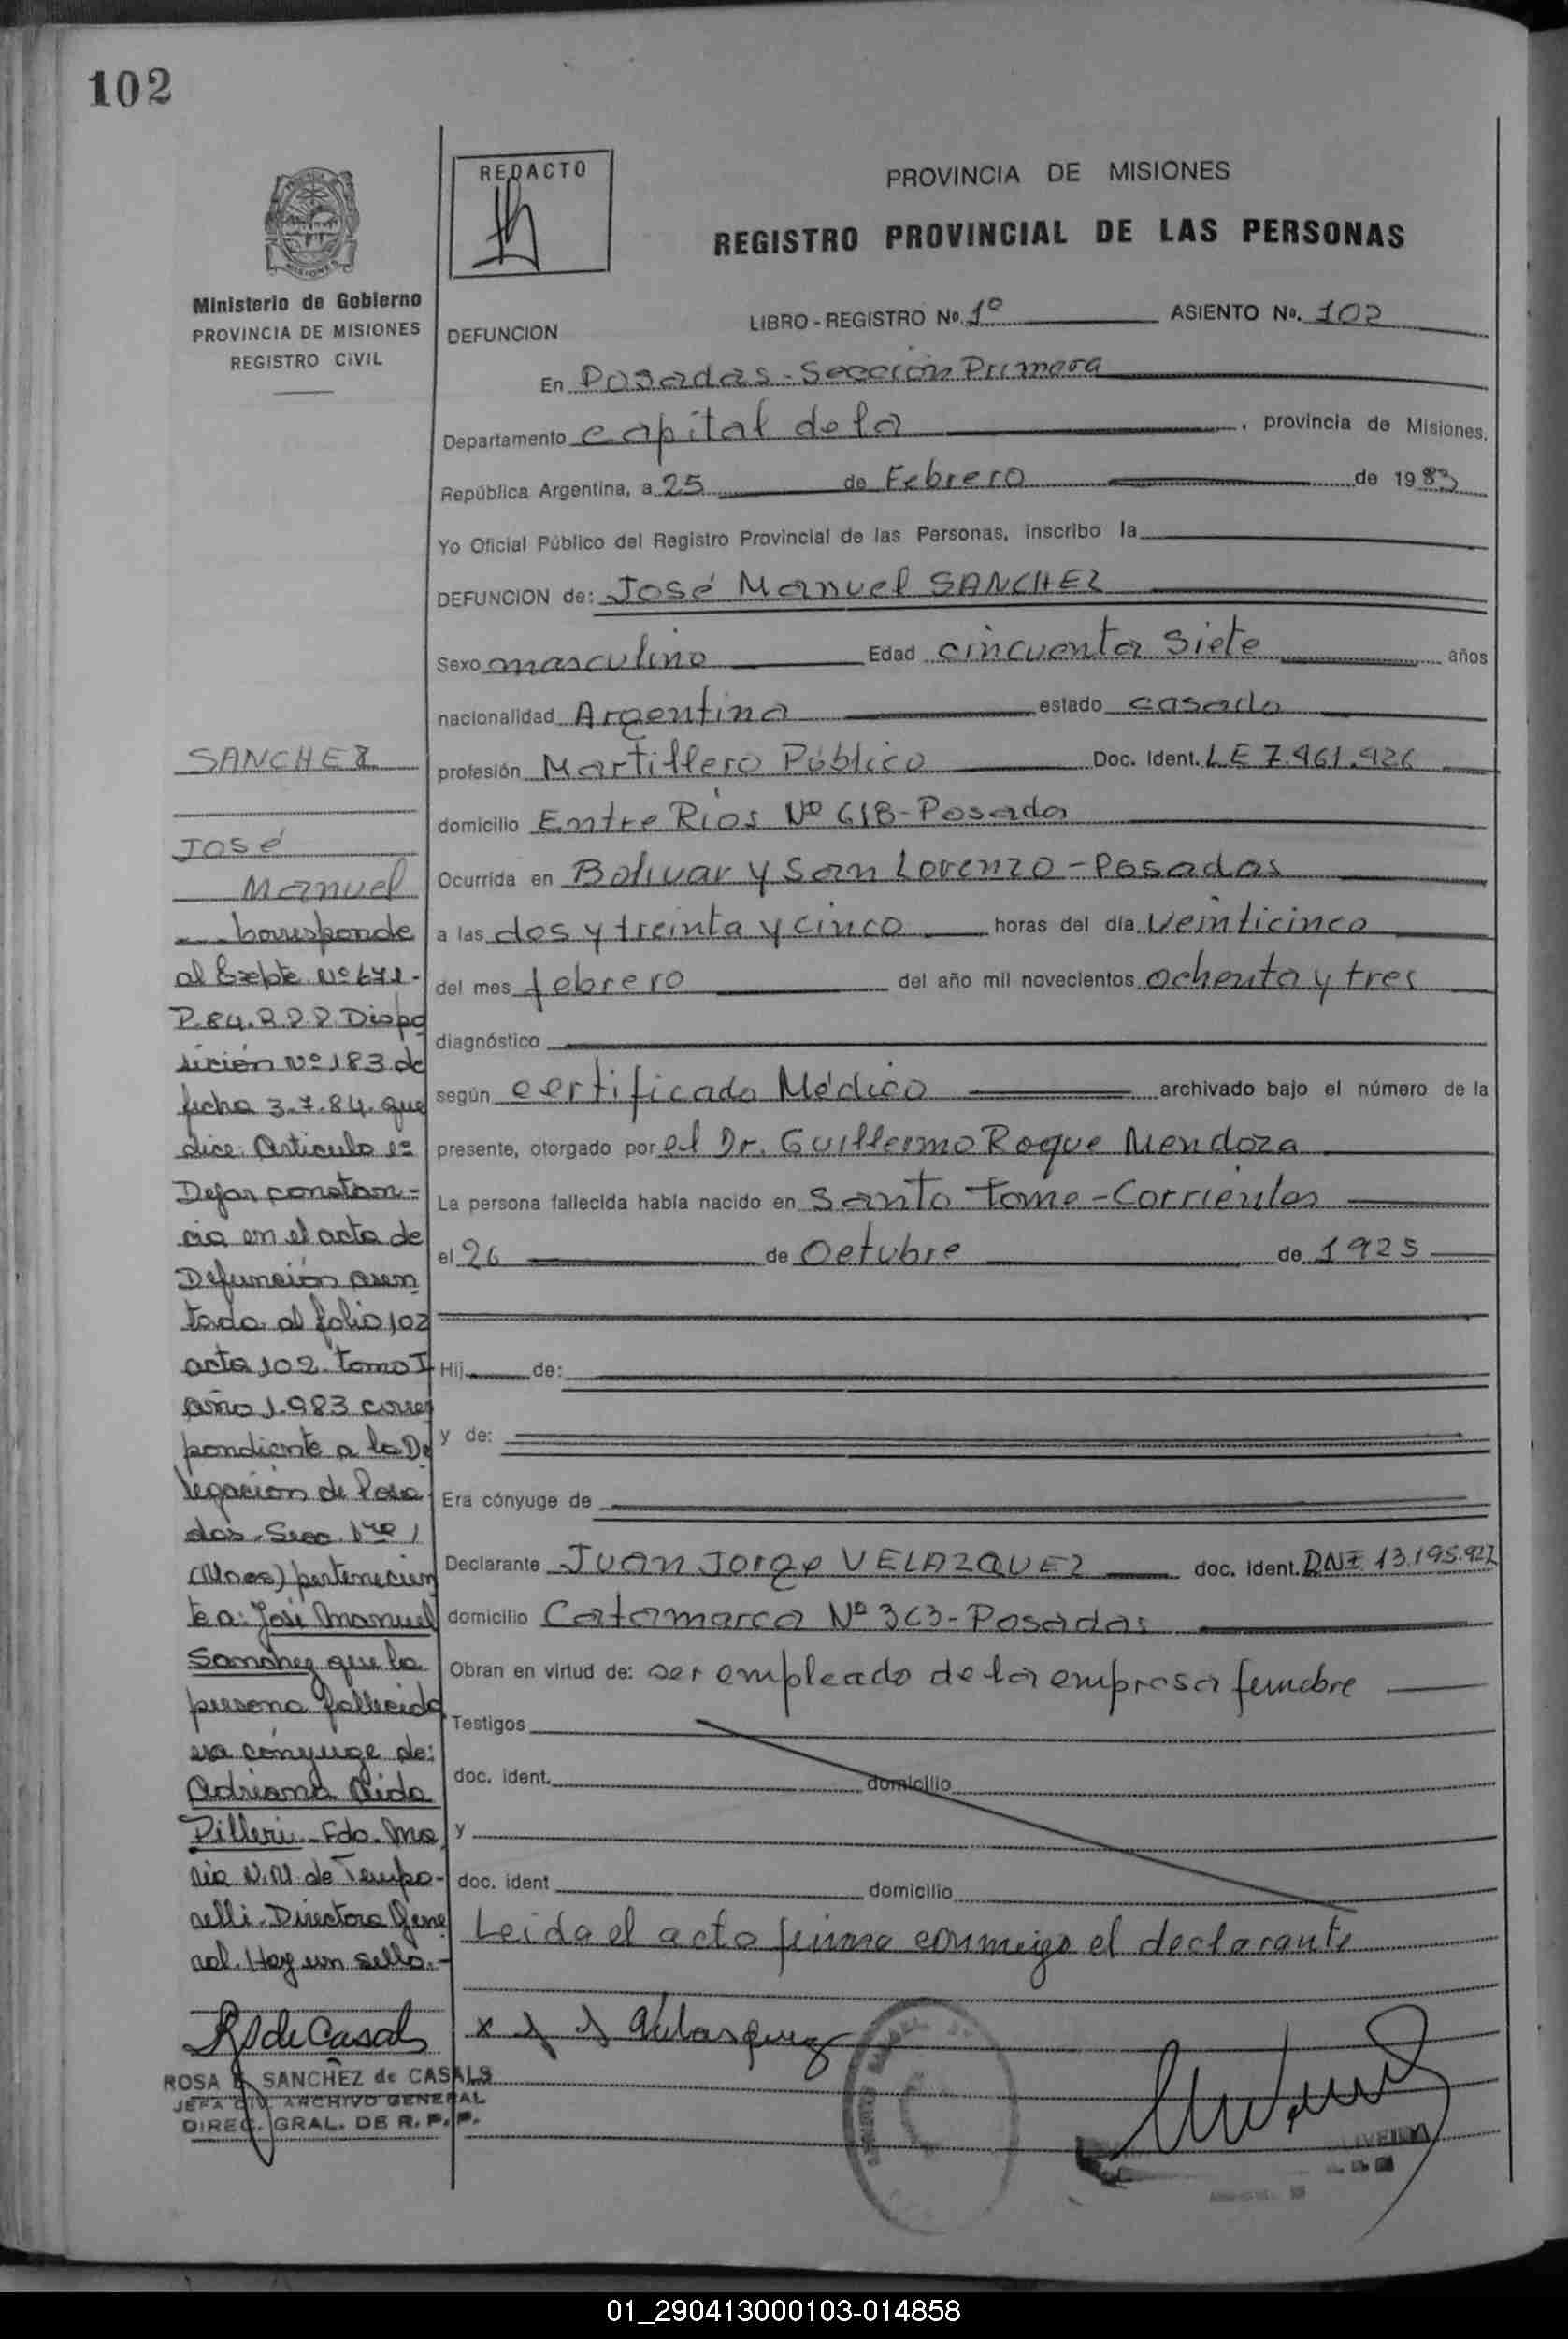 102
Ministerio de Gobierno
PROVINCIA DE MISIONES
REGISTRO CIVIL
REDACTO
PROVINCIA DE MISIONES
REGISTRO PROVINCIAL DE LAS PERSONAS
DEFUNCION
LIBRO - REGISTRO Nº. 1º ASIENTO Nº. 102
En Posadas - Sección Primera
Departamento Capital de la , provincia de Misiones,
República Argentina, a 25 de Febrero de 1983
Yo Oficial Público del Registro Provincial de las Personas, inscribo la
DEFUNCION de: José Manuel SANCHEZ
Sexo masculino Edad cincuenta Siete años
nacionalidad Argentina estado casado
profesión Martillero Público Doc. Ident. LE 7.461.926
domicilio Entre Rios Nº 618 - Posadas
Ocurrida en Bolivar y San Lorenzo - Posadas
a las dos y treinta y cinco horas del día veinticinco
del mes febrero del año mil novecientos ochenta y tres
diagnóstico
según certificado Médico archivado bajo el número de la
presente, otorgado por el Dr. Guillermo Roque Mendoza
La persona fallecida había nacido en Santo Tome - Corrientes
el 26 de Octubre de 1925
Hij de:
y de:
Era cónyuge de
Declarante Juan Jorge VELAZQUEZ doc. Ident. DNI 13.195.927
domicilio Catamarca Nº 363 - Posadas
Obran en virtud de: ser empleado de la empresa funebre
Testigos
doc. ident. domicilio
y
doc. ident domicilio
Leida el acta firma conmigo el declarante
x J J Velasquez
SANCHEZ
José
Manuel
Corresponde
al Expte. Nº 671-
P.84.R.P.P. Dispo
sición Nº 183 de
fecha 3.7.84. que
dice: Artículo 1º
Dejar constan-
cia en el acta de
Defunción asen
tada al folio 102
acta 102 tomo I
año 1.983 corres
pondiente a la De
legación de Posa
das. Secc. 1ra
(Mnes) pertenecien
te a: José Manuel
Sanchez que la
persona fallecida
era cónyuge de:
Adriana Aida
Pilleri - Fdo. Ma
ria N.M. de Tempo-
relli - Directora Gene
ral. Hay un sello.-
R S de Casals
ROSA E. SANCHEZ de CASALS
JEFA DIV. ARCHIVO GENERAL
DIREC. GRAL. DE R. P. P.
01_290413000103-014858